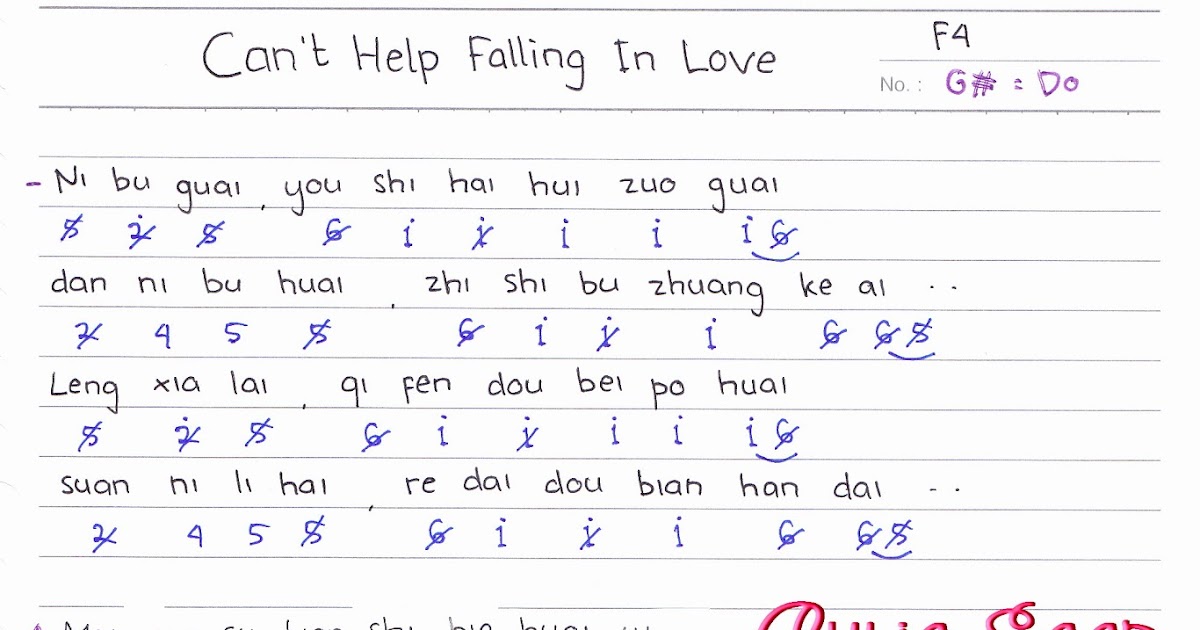 Can't Help Falling In Love
F4
No. : G# = Do
- Ni bu guai, you shi hai hui zuo guai
5̸ 2̸̇ 5̸ 6̸ 1̇ 1̸̇ 1̇ 1̇ 1̇ 6̸
dan ni bu huai, zhi shi bu zhuang ke ai ..
2̸ 4 5 5̸ 6̸ 1̇ 1̸̇ 1̇ 6̸ 6̸ 5̸
Leng xia lai, qi fen dou bei po huai
5̸ 2̸̇ 5̸ 6̸ 1̇ 1̸̇ 1̇ 1̇ 1̇ 6̸
suan ni li hai, re dai dou bian han dai ..
2̸ 4 5 5̸ 6̸ 1̇ 1̸̇ 1̇ 6̸ 6̸ 5̸